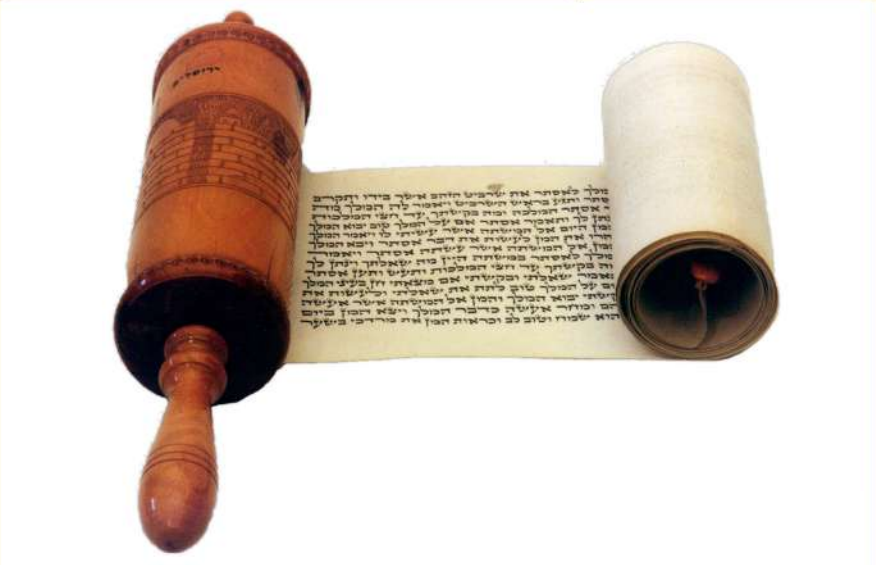 ירושלים
לאסתר את שרביט הזהב אשר בידו ותקרב
ותגע בראש השרביט ויאמר לה המלך מה
אסתר המלכה ומה בקשתך עד חצי המלכות
לך ותאמר אסתר אם על המלך טוב יבוא המלך
היום אל המשתה אשר עשיתי לו ויאמר המלך
את המן לעשות את דבר אסתר ויבא המלך
אל המשתה אשר עשתה אסתר ויאמר
לאסתר במשתה היין מה שאלתך וינתן לך
בקשתך עד חצי המלכות ותעש ותען אסתר
שאלתי ובקשתי אם מצאתי חן בעיני המלך
על המלך טוב לתת את שאלתי ולעשות את
יבוא המלך והמן אל המשתה אשר אעשה
ומחר אעשה כדבר המלך ויצא המן ביום
הוא שמח וטוב לב וכראות המן את מרדכי בשער